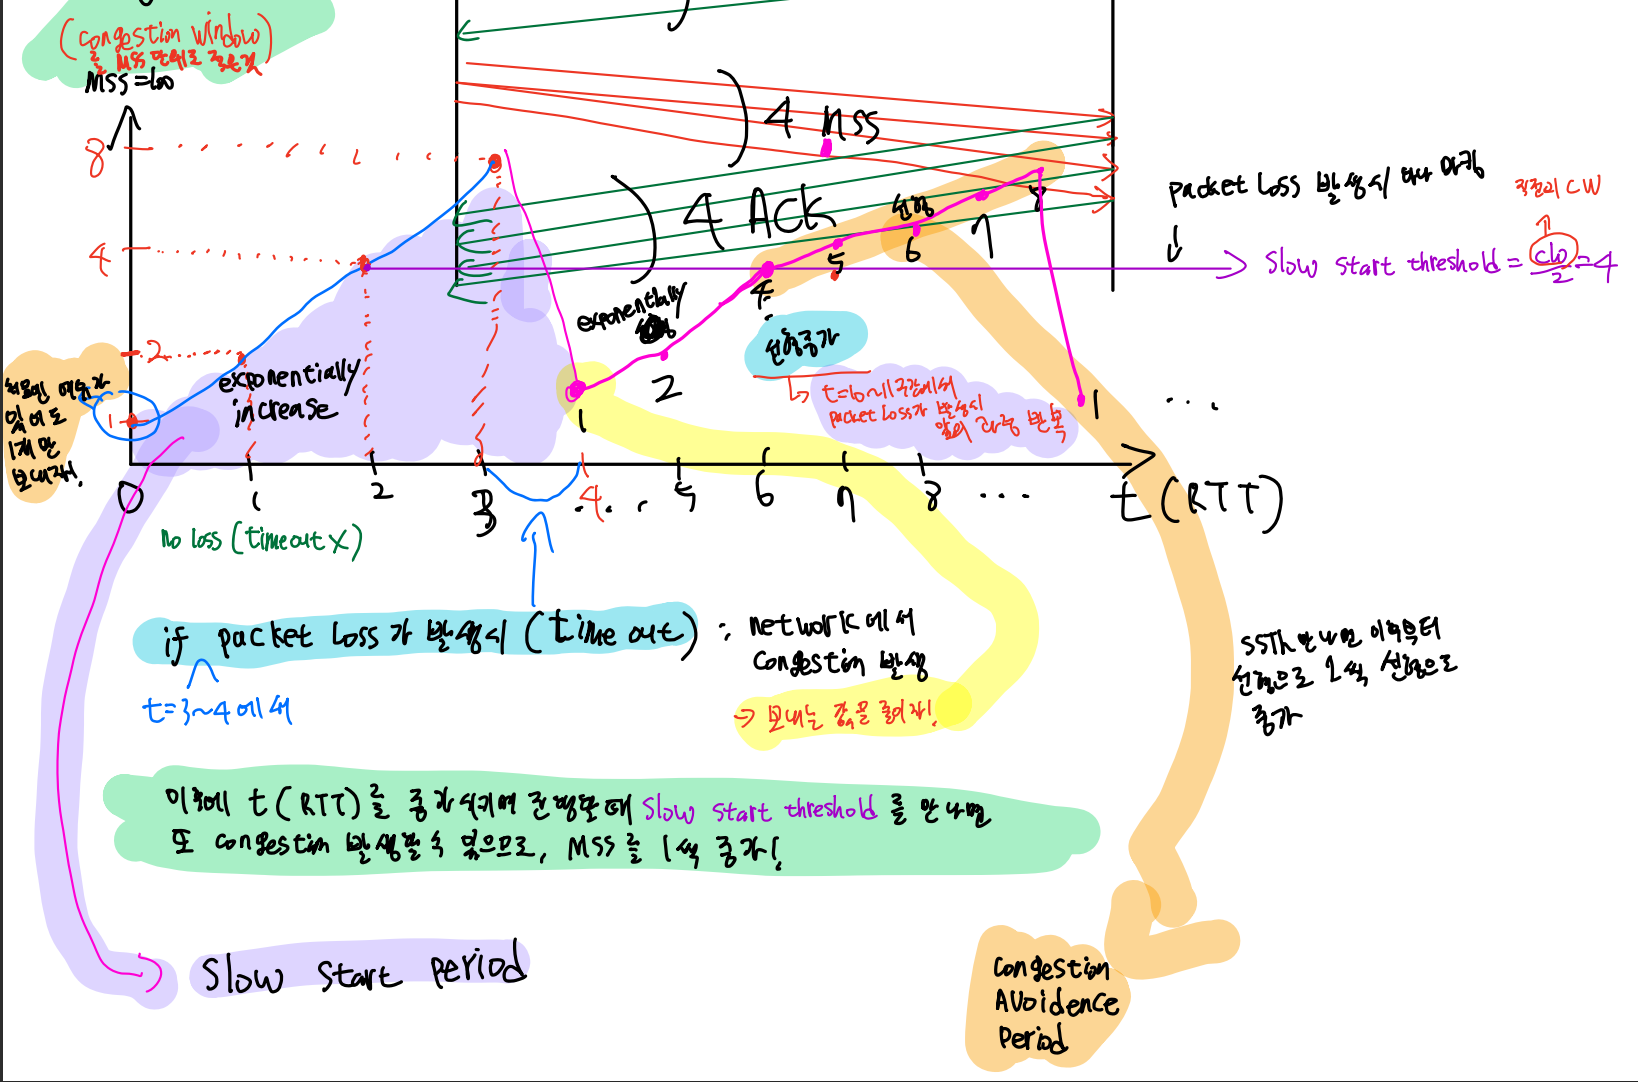 (congestion window)
를 MSS 단위로 줄인것
MSS=100
8
4
2
1
처음엔 여유가
있어도
1개만
보내자!
exponentially
increase
) 4 MSS
) 4 ACK
exponentially
선형
1
2
4
5
6
7
8
1
...
선형증가
t=6~11구간에서
packet Loss가 발생시
앞의 과정 반복
packet Loss 발생시 마다 마킹
직전의 CW
Slow start threshold = CW/2 = 4
0
1
2
3
4
...
5
6
7
8
...
t (RTT)
No loss (timeout X)
if packet Loss가 발생시 (time out) : network에서
Congestin 발생
t=3~4에서
→ 보내는 양을 줄이자!
SSTh 만나면 이후부터
선형으로 1씩 선형으로
증가
이후에 t (RTT)를 증가시키며 진행할때 Slow start threshold를 만나면
또 congestin 발생할 수 있으므로, MSS를 1씩 증가!
Slow start period
Congestion
Avoidence
Period